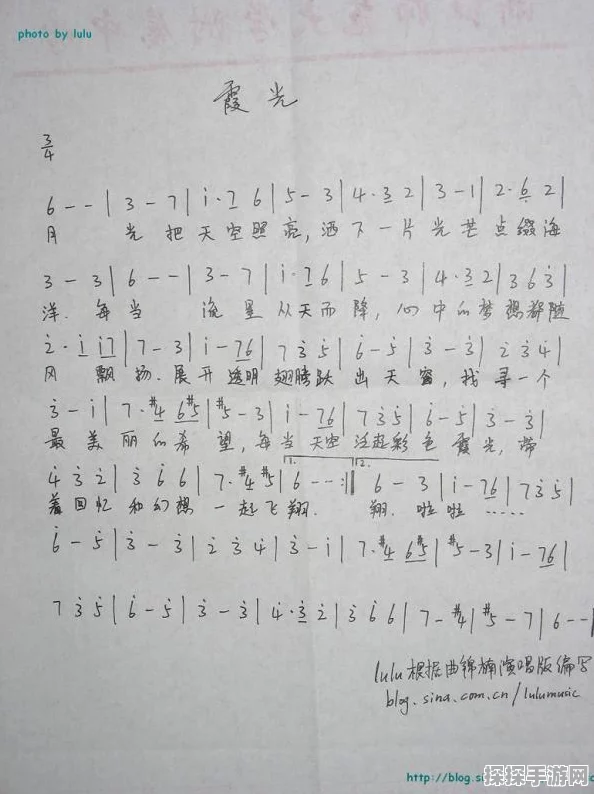 photo by lulu
霞光
3/4
6 - - | 3 - 7 | i · 7 6 | 5 - 3 | 4 · 3 2 | 3 - 1 | 2 · 6 2 |
月 光 把 天 空 照 亮, 洒 下 一 片 光 芒 点 缀 海
3 - 3 | 6 - - | 3 - 7 | i · 7 6 | 5 - 3 | 4 · 3 2 | 3 6 3̇ |
洋. 每 当 流 星 从 天 而 降, 心 中 的 梦 想 都 随
2̇ · i i7 | 7 - 3 | i - 76 | 7 3̇ 5̇ | 6̇ - 5̇ | 3̇ - 3̇ | 2̇ 3̇ 4̇ |
风 飘 扬. 展 开 透 明 翅 膀 跃 出 天 窗, 找 寻 一 个
3̇ - i | 7 · #4̇ 6#5 | #5 - 3 | i - 76 | 7 3̇ 5̇ | 6̇ - 5̇ | 3̇ - 3̇ |
最 美 丽 的 希 望, 每 当 天 空 泛 起 彩 色 霞 光, 带
1. 2.
4̇ 3̇ 2̇ | 3̇ 6̇ 6 | 7 · #4̇ #5 | 6 - - :‖ 6 - 3 | i - 76 | 7 3̇ 5̇ |
着 回 忆 和 幻 想 一 起 飞 翔. 翔. 啦 啦 ......
6̇ - 5̇ | 3̇ - 3̇ | 2̇ 3̇ 4̇ | 3̇ - i | 7 · #4̇ 6#5 | #5 - 3 | i - 76 |
7 3̇ 5̇ | 6̇ - 5̇ | 3̇ - 3̇ | 4̇ · 3̇ 2̇ | 3̇ 6̇ 6 | 7 - #4 | #5 - 7 | 6 - - |
lulu根据曲锦楠演唱版编写
blog.sina.com.cn/lulumusic
http://blog.si
探探手游网